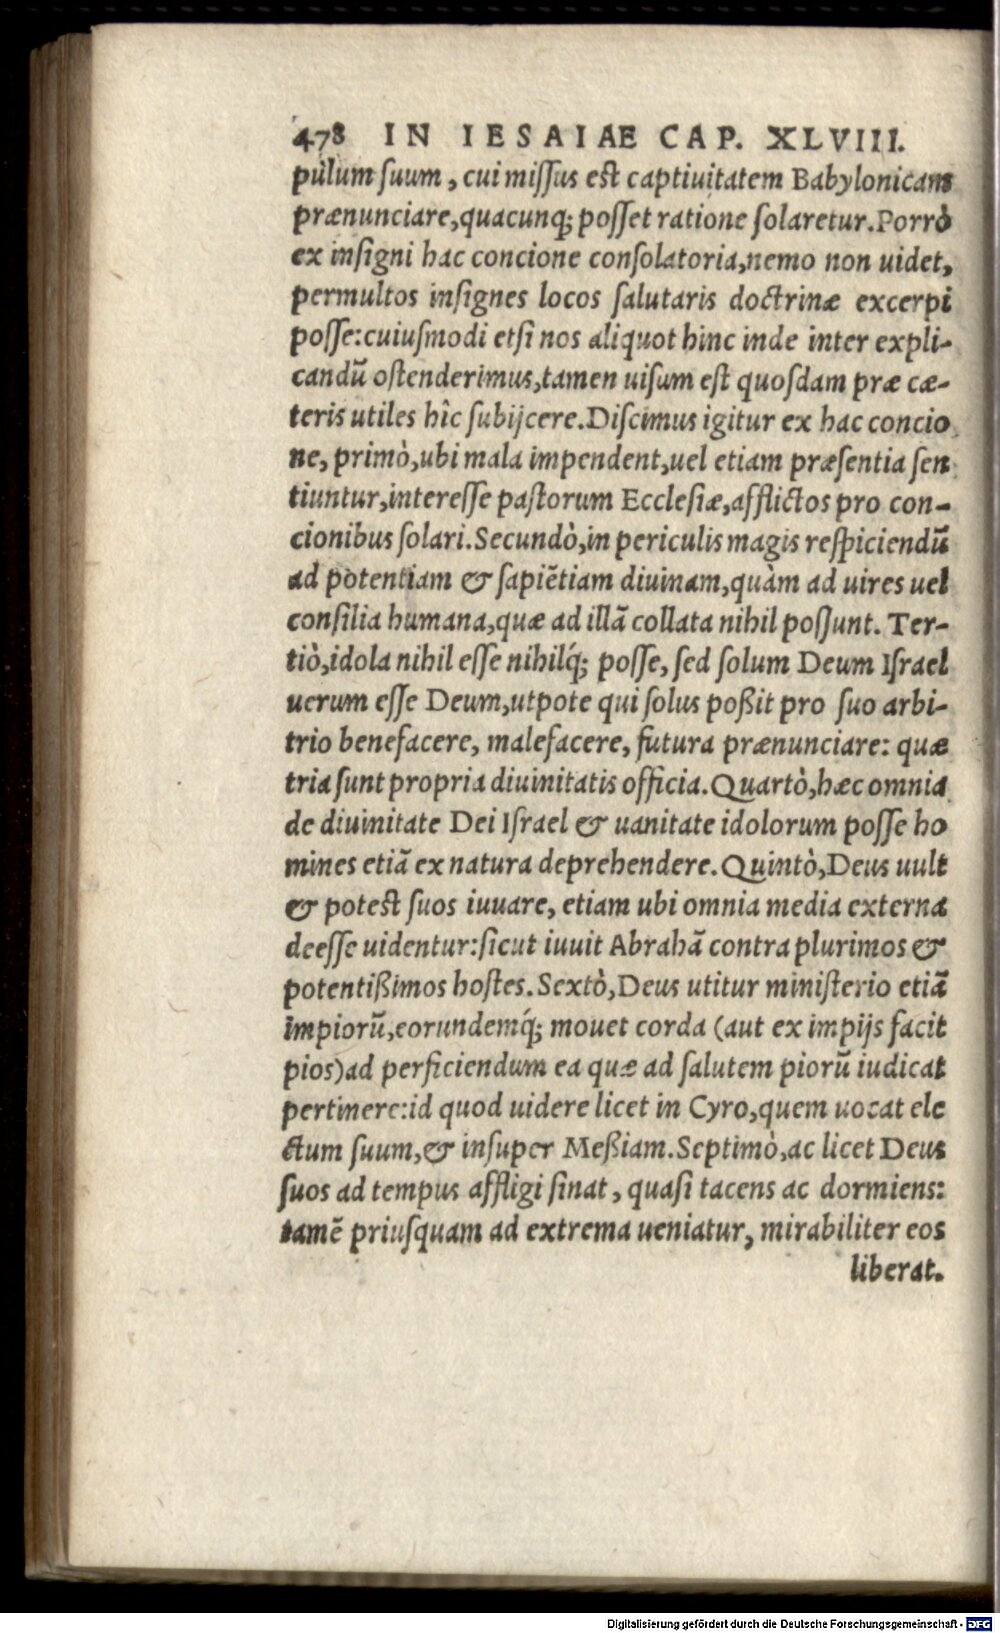 478 IN IESAIAE CAP. XLVIII.
pulum ſuum, cui miſſus eſt captiuitatem Babylonicam
prænunciare, quacunq; poſſet ratione ſolaretur. Porrò
ex inſigni hac concione conſolatoria, nemo non uidet,
permultos inſignes locos ſalutaris doctrinæ excerpi
poſſe: cuiuſmodi etſi nos aliquot hinc inde inter expli-
candū oſtenderimus, tamen uiſum eſt quoſdam præ cæ-
teris utiles hîc ſubijcere. Diſcimus igitur ex hac concio
ne, primò, ubi mala impendent, uel etiam præſentia ſen
tiuntur, intereſſe paſtorum Eccleſiæ, afflictos pro con-
cionibus ſolari. Secundò, in periculis magis reſpiciendū
ad potentiam & ſapiētiam diuinam, quàm ad uires uel
conſilia humana, quæ ad illā collata nihil poſſunt. Ter-
tiò, idola nihil eſſe nihilq́; poſſe, ſed ſolum Deum Iſrael
uerum eſſe Deum, utpote qui ſolus poßit pro ſuo arbi-
trio benefacere, malefacere, futura prænunciare: quæ
tria ſunt propria diuinitatis officia. Quartò, hæc omnia
de diuinitate Dei Iſrael & uanitate idolorum poſſe ho
mines etiā ex natura deprehendere. Quintò, Deus uult
& poteſt ſuos iuuare, etiam ubi omnia media externa
deeſſe uidentur: ſicut iuuit Abrahā contra plurimos &
potentißimos hoſtes. Sextò, Deus utitur miniſterio etiā
impiorū, eorundemq́; mouet corda (aut ex impijs facit
pios) ad perficiendum ea quæ ad ſalutem piorū iudicat
pertinere: id quod uidere licet in Cyro, quem uocat ele
ctum ſuum, & inſuper Meßiam. Septimò, ac licet Deus
ſuos ad tempus affligi ſinat, quaſi tacens ac dormiens:
tamē priuſquam ad extrema ueniatur, mirabiliter eos
liberat.
Digitalisierung gefördert durch die Deutsche Forschungsgemeinschaft - DFG